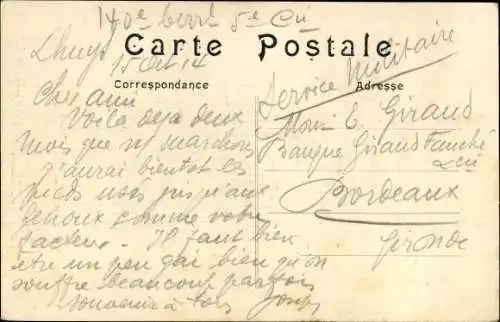 140e terrl 5e Cie
Lhuys
15 Oct 14
Carte Postale
Correspondance
Adresse
Service Militaire
Cher ami
Voilà deja deux
mois que ns marchons
j'aurai bientôt les
pieds usés jusqu'aux
genoux comme votre
facteur. Il faut bien
être un peu gai bien qu'on
souffre beaucoup parfois
Souvenir à tous
Monsr E. Giraud
Banque Giraud
& Cie
Bordeaux
Gironde